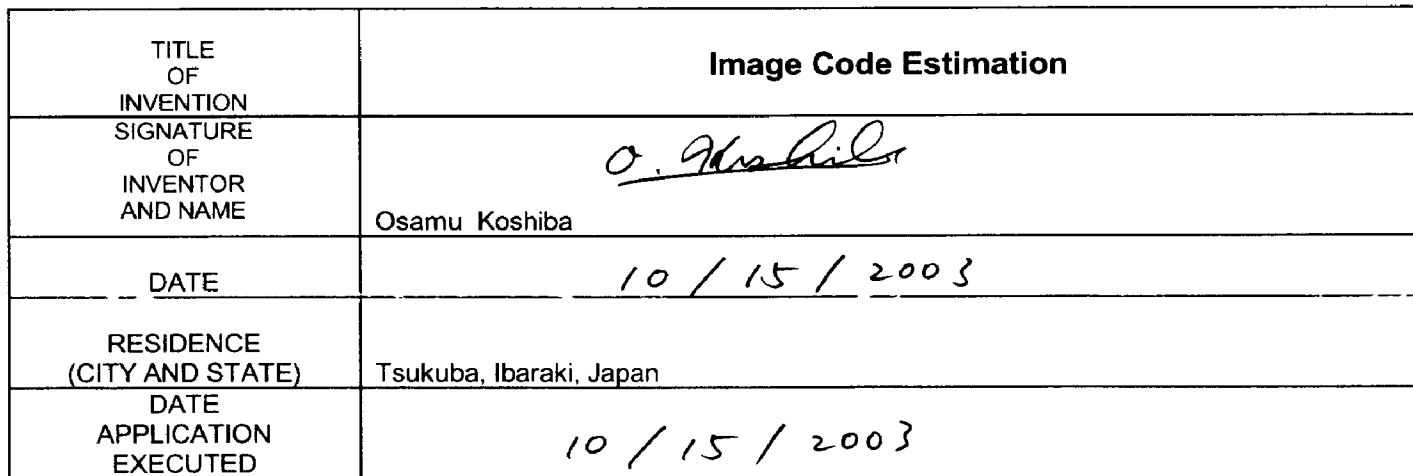 TITLE
OF
INVENTION
Image Code Estimation
SIGNATURE
OF
INVENTOR
AND NAME
O. Koshiba
Osamu Koshiba
DATE
10 / 15 / 2003
RESIDENCE
(CITY AND STATE)
Tsukuba, Ibaraki, Japan
DATE
APPLICATION
EXECUTED
10 / 15 / 2003